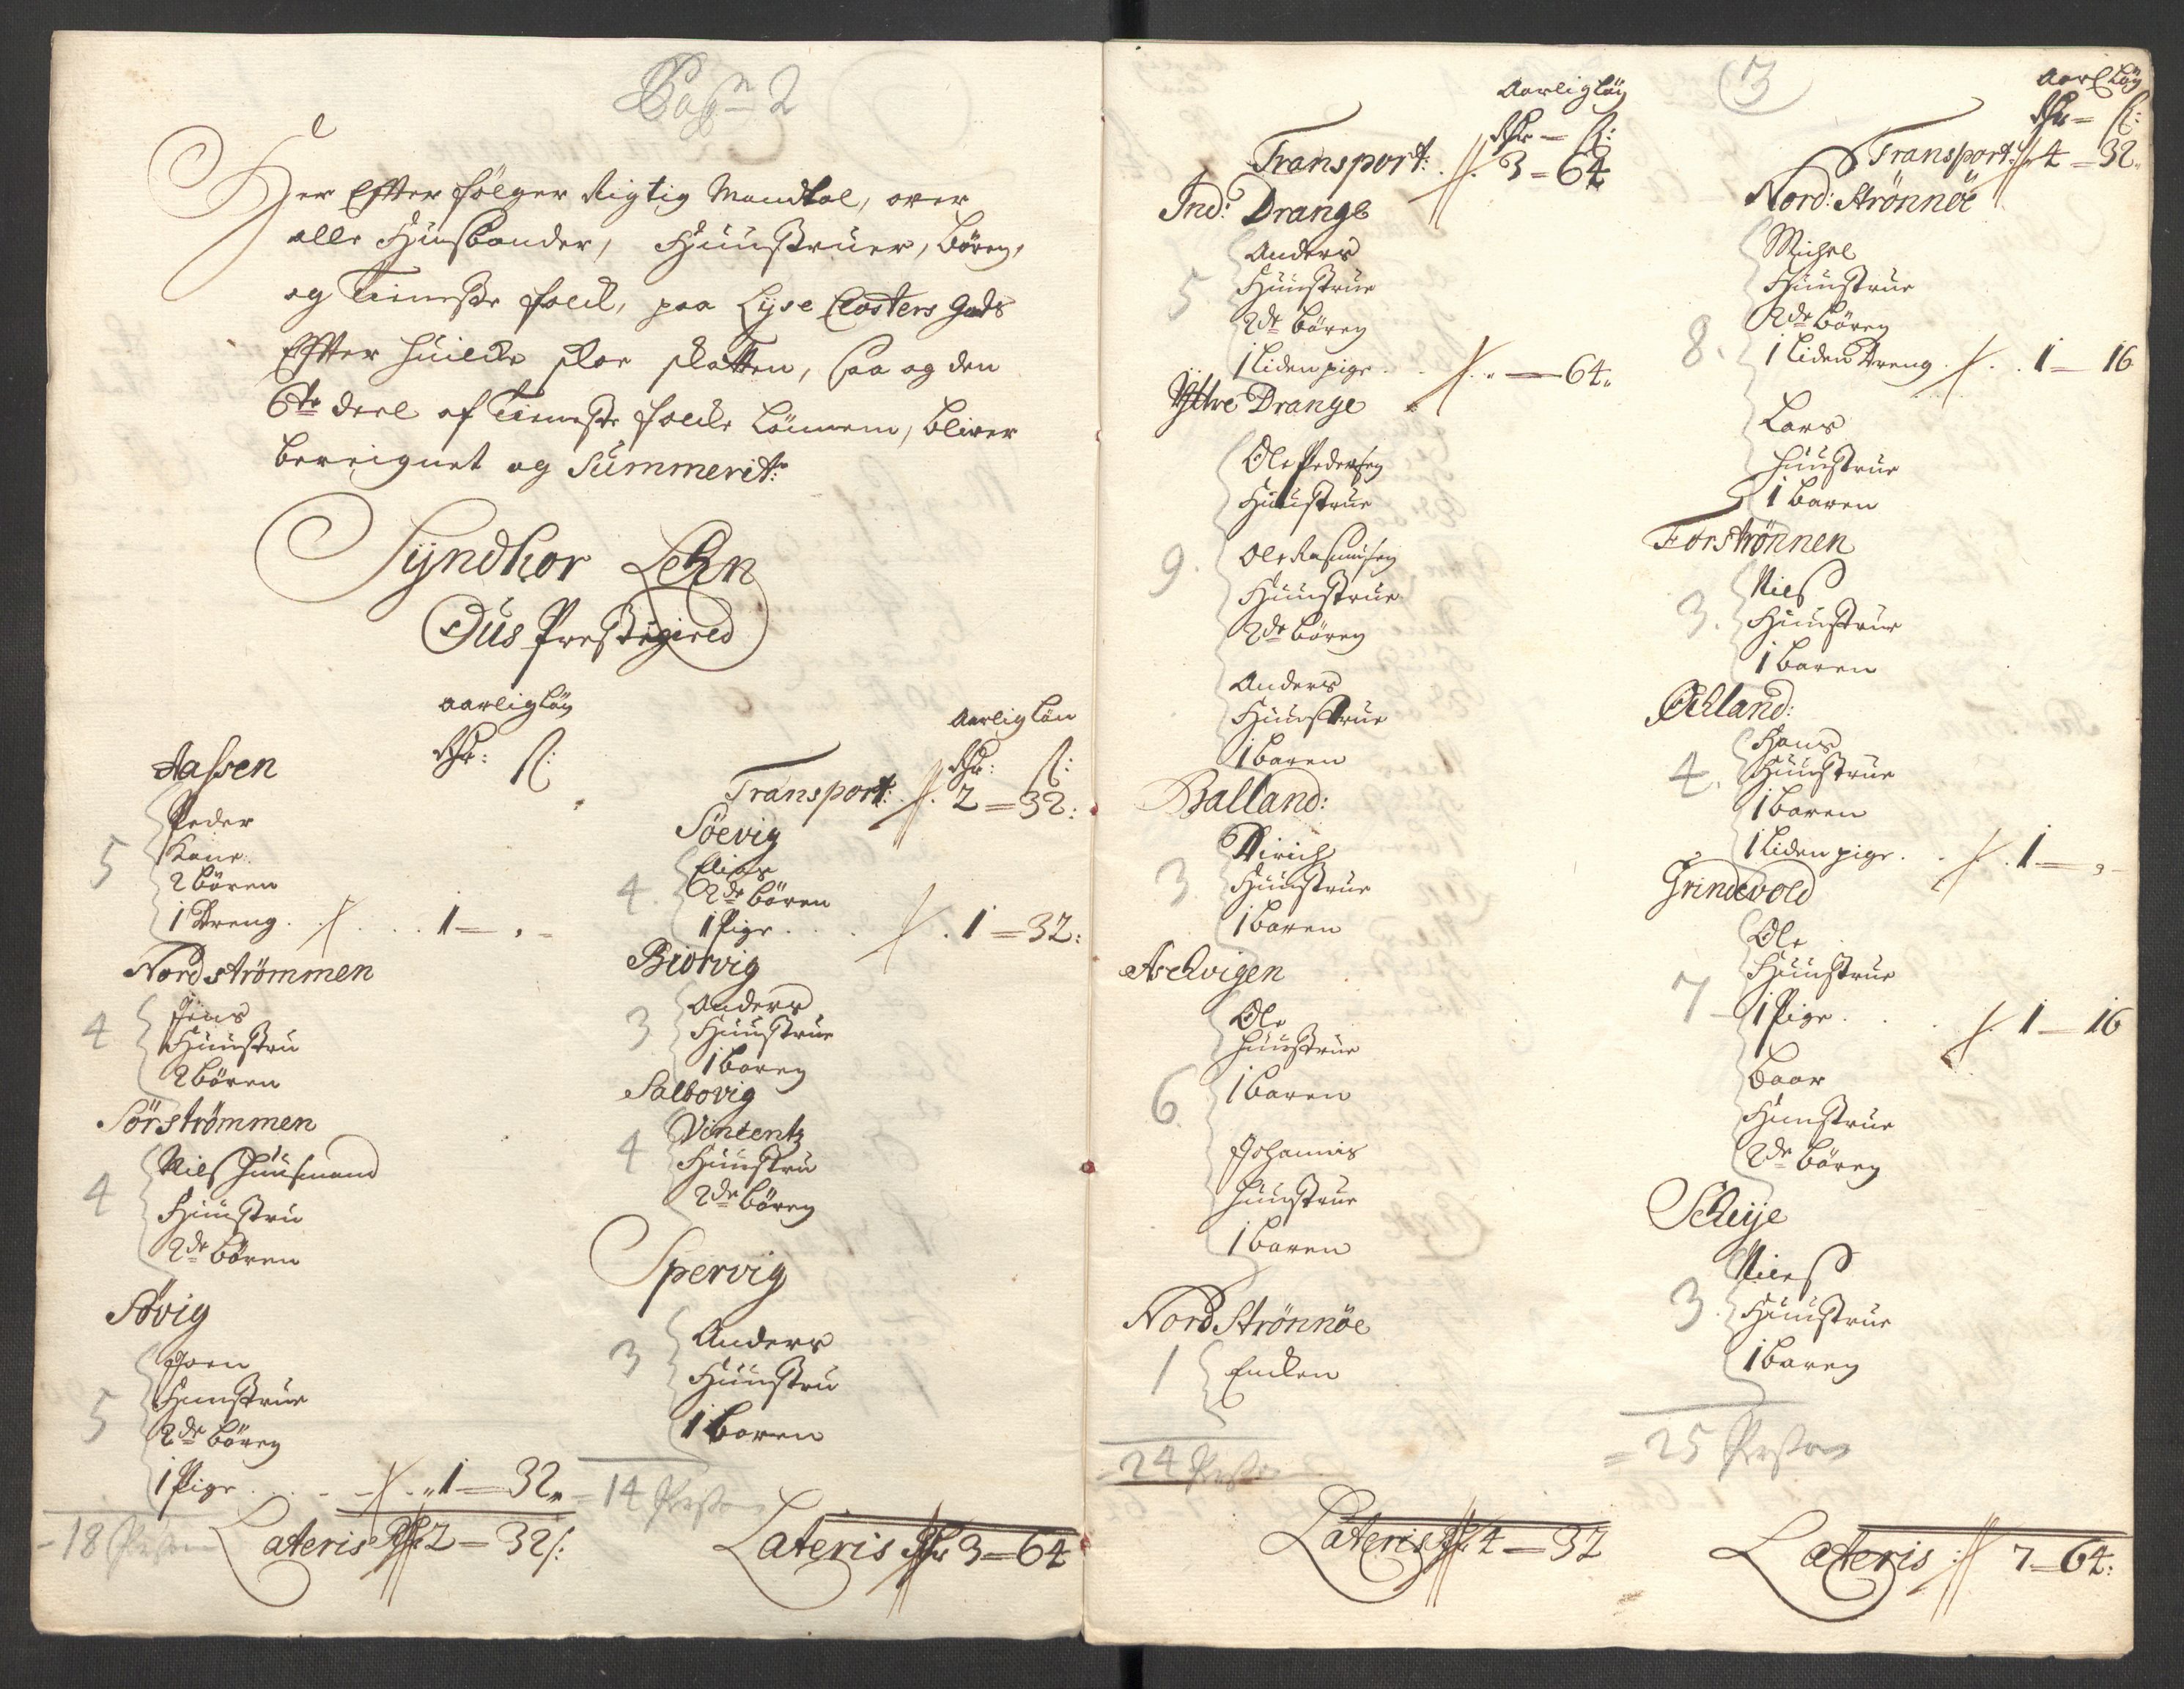 Pag: 2
Her Effter følger Rigtig Mandtal, over
alle Huusbonder, Huustruer, Børen,
og Tieneste folck, paa Lyse Closters Gods
Effter huilcke skoe skatten, saa og den
6te deel af Tieneste folcke Lønnen, bliver
bereignet og Summerit:
Syndhor Lehn
Ous Prestegield
Aarlig Løn
Rdr: ß:
Aassen
Peder
Kone
2 børen
1 Dreng . . . 1 = , =
5
Nordstrømmen
Jens
Huustru
2 børen
4
Sørstrømmen
Niels Huusmand
Huustru
2de børen
4
Søvig
Joen
Huustrue
2de børen
1 Pige . . . 1 = 32
5
18 Person
Lateris Rdr 2 = 32 ß:
Aarlig Løn
Rdr: ß:
Transport: 2 = 32:
Søevig
Elias
2de børen
1 Pige . . . 1 = 32:
4
Biorvig
Anders
Huustrue
1 baren
3
Salbovig
Vincentz
Huustru
2de børen
4
Spervig
Anders
Huustru
1 baren
3
14 Person
Lateris Rdr 3 = 64
Aarlig Løn
Rdr = ß:
Transport: 3 = 64
Ind: Drange
Anders
Huustrue
2de børen
1 Liden pige . . — 64
5
Yttre Drange
Ole Pedersen
Huustrue
Ole Rasmusen
Huustrue
2de børen
Anders
Huustrue
1 baren
9.
Balland:
Dirich
Huustrue
1 baren
3
Aschvigen
Ole
Huustrue
1 baren
Johannis
Huustrue
1 baren
6
Nord Strønnøe
Encken
1
= 24 Person
Lateris Rdr 4 = 32
3
Aarl Løn
Rdr = ß:
Transport: 4 = 32
Nord: Strønnøe
Michel
Huustrue
2de børen
1 Liden Dreng . . 1 = 16
Lars
Huustrue
1 baren
8.
Forstrønnen
Niels
Huustrue
1 baren
3.
Øchland:
Hans
Huustrue
1 baren
1 Liden pige . . 1 = ,
4.
Grindevold
Ole
Huustrue
1 Pige . . 1 = 16
Baar
Huustrue
2de børen
7
Scheije
Niels
Huustrue
1 baren
3.
= 25 Person
Lateris 7 = 64: